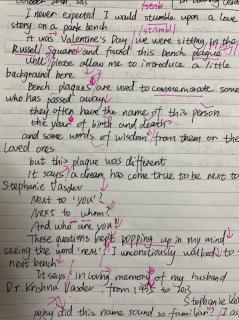 October 20th, 2015
I never expected I would stumble upon a love
story on a park bench
It was Valentine's Day, we were sitting in
Russell Square and found this bench plaque
Well, please allow me to introduce a little
background here
bench plaques are used to commemorate some
who has passed away
they often have the name of this person
the year of birth and death
and some words of wisdom from them or the
loved ones
but this plaque was different
It says, a dream has come true to be next to
Stephanie Vasdev
Next to 'you'?
Next to whom?
And who are you?
These questions kept popping up in my mind
seeing the word I unconsciously walked to
next bench
It says in loving memory of my husband
Dr. Krishna Vasdev from to
Stephanie Va
why did this name sound so familiar? I